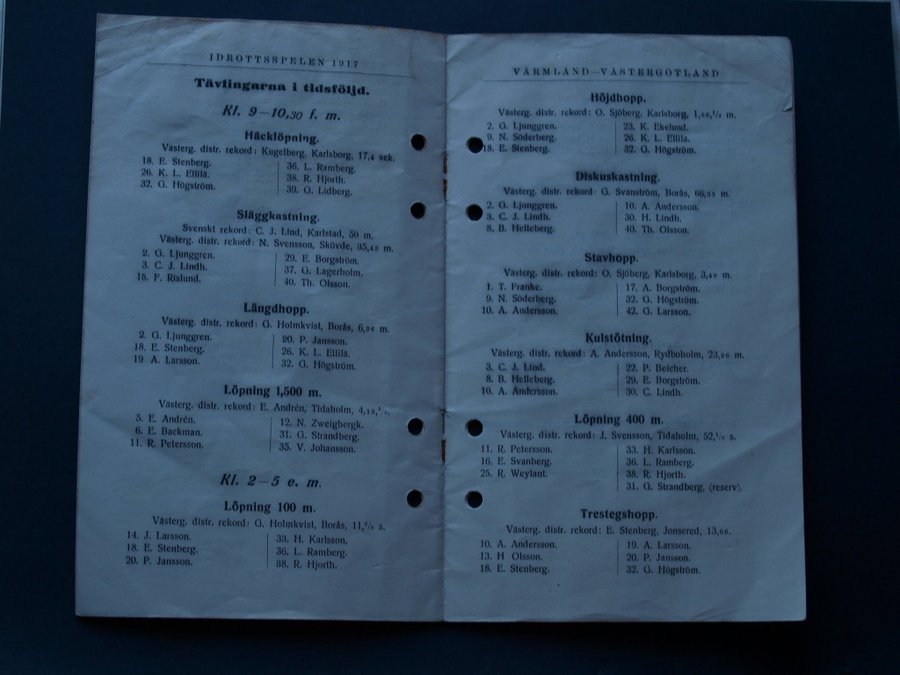 IDROTTSSPELEN 1917
Tävlingarna i tidsföljd.
Kl. 9—10,30 f. m.
Häcklöpning.
Västerg. distr. rekord: Kugelberg, Karlsborg, 17,4 sek.
18. E. Stenberg.
26. K. L. Ellilä.
32. G. Högström.
36. L. Ramberg.
38. R. Hjorth.
39. G. Lidberg.
Släggkastning.
Svenskt rekord: C. J. Lind, Karlstad, 50 m.
Västerg. distr. rekord: N. Svensson, Skövde, 35,43 m.
2. G. Ljunggren.
3. C. J. Lindh.
15. F. Rislund.
29. E. Borgström.
37. G. Lagerholm.
40. Th. Olsson.
Längdhopp.
Västerg. distr. rekord: G. Holmkvist, Borås, 6,96 m.
2. G. Ljunggren.
18. E. Stenberg.
19 A. Larsson.
20. P. Jansson.
26. K. L. Ellilä.
32. G. Högström.
Löpning 1,500 m.
Västerg. distr. rekord: E. Andrén, Tidaholm,
5. E. Andrén.
6. E. Backman.
11. R. Petersson.
12. N. Zweigbergk.
31. G. Strandberg.
35. V. Johansson.
Kl. 2—5 e. m.
Löpning 100 m.
Västerg. distr. rekord: G. Holmkvist, Borås, s.
14. J. Larsson.
18. E. Stenberg.
20. P. Jansson.
33. H. Karlsson.
36. L. Ramberg.
38. R. Hjorth.
VÄRMLAND—VÄSTERGÖTLAND
Höjdhopp.
Västerg. distr. rekord: O. Sjöberg, Karlsborg, m.
2. G. Ljunggren.
9. N. Söderberg.
18. E. Stenberg.
23. K. Ekelund.
26. K. L. Ellilä.
32. G. Högström.
Diskuskastning.
Västerg. distr. rekord: G. Svanström, Borås, m.
2. G. Ljunggren.
3. C. J. Lindh.
8. B. Helleberg.
10. A. Andersson.
30. H. Lindh.
40. Th. Olsson.
Stavhopp.
Västerg. distr. rekord: O. Sjöberg, Karlsborg, m.
1. T. Franke.
9. N. Söderberg.
10. A. Andersson.
17. A. Borgström.
32. G. Högström.
42. G. Larsson.
Kulstötning.
Västerg. distr. rekord: A. Andersson, Rydboholm, m.
3. C. J. Lind.
8. B. Helleberg.
10. A. Andersson.
22. P. Beicher.
29. E. Borgström.
30. C. Lindh.
Löpning 400 m.
Västerg. distr. rekord: J. Svensson, Tidaholm, s.
11. R. Petersson.
16. E. Svanberg.
25. R. Weylant.
33. H. Karlsson.
36. L. Ramberg.
38. R. Hjorth.
31. G. Strandberg, (reserv).
Trestegshopp.
Västerg. distr. rekord: E. Stenberg, Jonsered, m.
10. A. Andersson.
13. H Olsson.
18. E. Stenberg.
19. A. Larsson.
20. P. Jansson.
32. G. Högström.